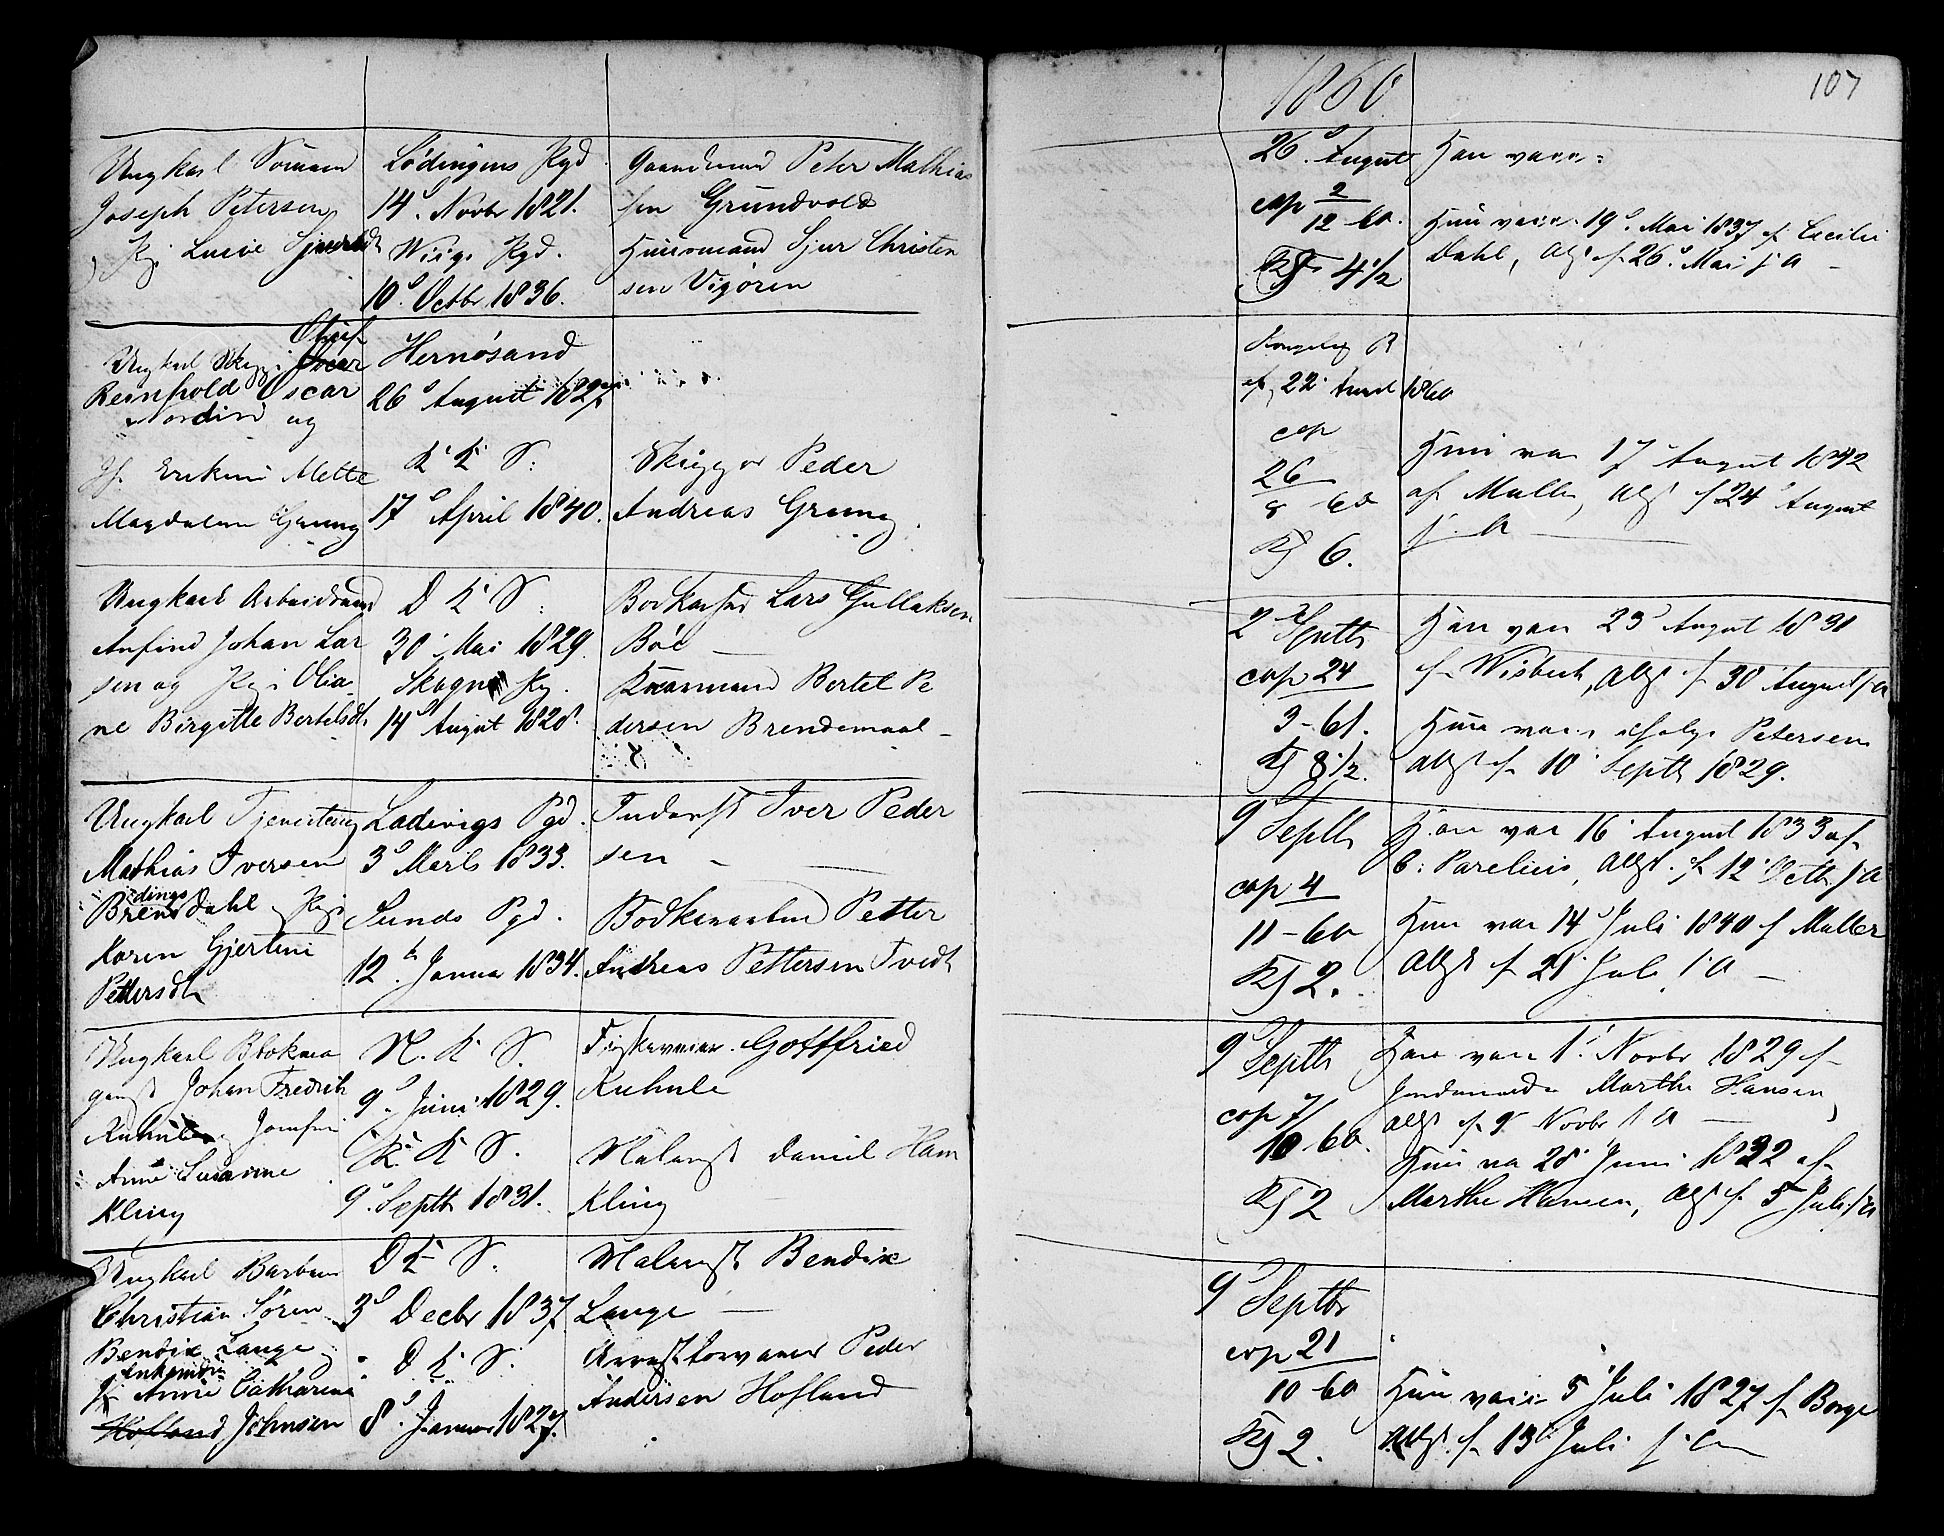 1860.
107
Ungkarl Sömand
Joseph Petersen
Pg. Lucie Sjursdt
Lödingens Pgd.
14d. Novbr 1821.
Wiigs Pgd.
10d. Octbr 1836.
Gaardmand Peter Mathias
sen Grundvold
Huusmand Sjur Christen
sen Vigören
26d. August
cop 2/12 60.
Kj 4 1/2
Han vacc:
Hun vacc. 19d. Mai 1837 af Cecilie
Dahl, Att f 26d. Mai s A
Oluf
Ungkarl Skipp:
Reinhold Oscar
Nordin og
Jf. Erikine Mette
Magdalene Grung
Hernösand
26d August 1827
K K S:
17d April 1840.
Skipper Peder
Andreas Grung.
af 22 1860
cop
26/8 60
Kj 6.
Hun vac 17 August 1842
af Müller, Att f 24d August
s. A
Ungkarl Arbeidsmd
Anfind Johan Lar
sen og Pg. Olia
ne Birgitte Bertelsdt.
D K S:
30 Mai 1829.
Skogns Pg.
14d August 1828.
Bödkersvd Lars Gullaksen
Böe
Qvarnmand Bertel Pe
dersen Brendemoal
2d Septb
cop 24
3-61.
Kj 8 1/2.
Han vacc 23d August 1831
f Wisbech, Att f 30 August s A
Hun vacc. ifölge Petersen
Att f 10 Septb 1829.
Ungkarl Tjenestedreng
Mathias Iversen
dings
Brensdahl Pg
Karen Gjertine
Pettersdt
Ladevigs Pgd.
3d Marts 1833.
Sunds Pgd.
12te Januar 1834.
Inderst Iver Peder
sen
Bödkersvend Petter
Andreas Pettersen Tvedt
9d Septb
cop 4
11-60
Kj 2.
Han vac 16 August 1833 af
C: Parelius, Att. f 12 Octb s A
Hun vac 14d Juli 1840 f Müller
Att f 21 Juli s A
Ungkarl Blokma
gerst Johan Fredrik
Kuhnle Jomfru
Anne Susanne
Kling
N. K S.
9d. Juni 1829.
K. K S.
9d. Septb 1831.
Fiskevrager Gottfried
Kuhnle
Malerst Daniel Ham
Kling
9d Septb
cop 7/
10 60.
Kj 2
Han vacc 1d. Novbr 1829 f
Jordemoder Marthe Hansen,
Att f 9 Novbr s A
Hun va 28 Juni 1832 af
Marthe Hansen, Att f 5 Juli s A
Ungkarl Barbeer
Christian Sören
Bendix Lange
Ankemdn
Anne Catharine
Hofland Johnsen
D K S.
3d Decbr 1837.
D K S.
8d. Januar 1827.
Malerst Bendix
Lange
Arrestforvarer Peder
Andersen Hofland
9d Septbr
cop 21
10 60
Kj 2.
Hun vacc 5 Juli 1827 f Borge
Att f 13 Juli s A